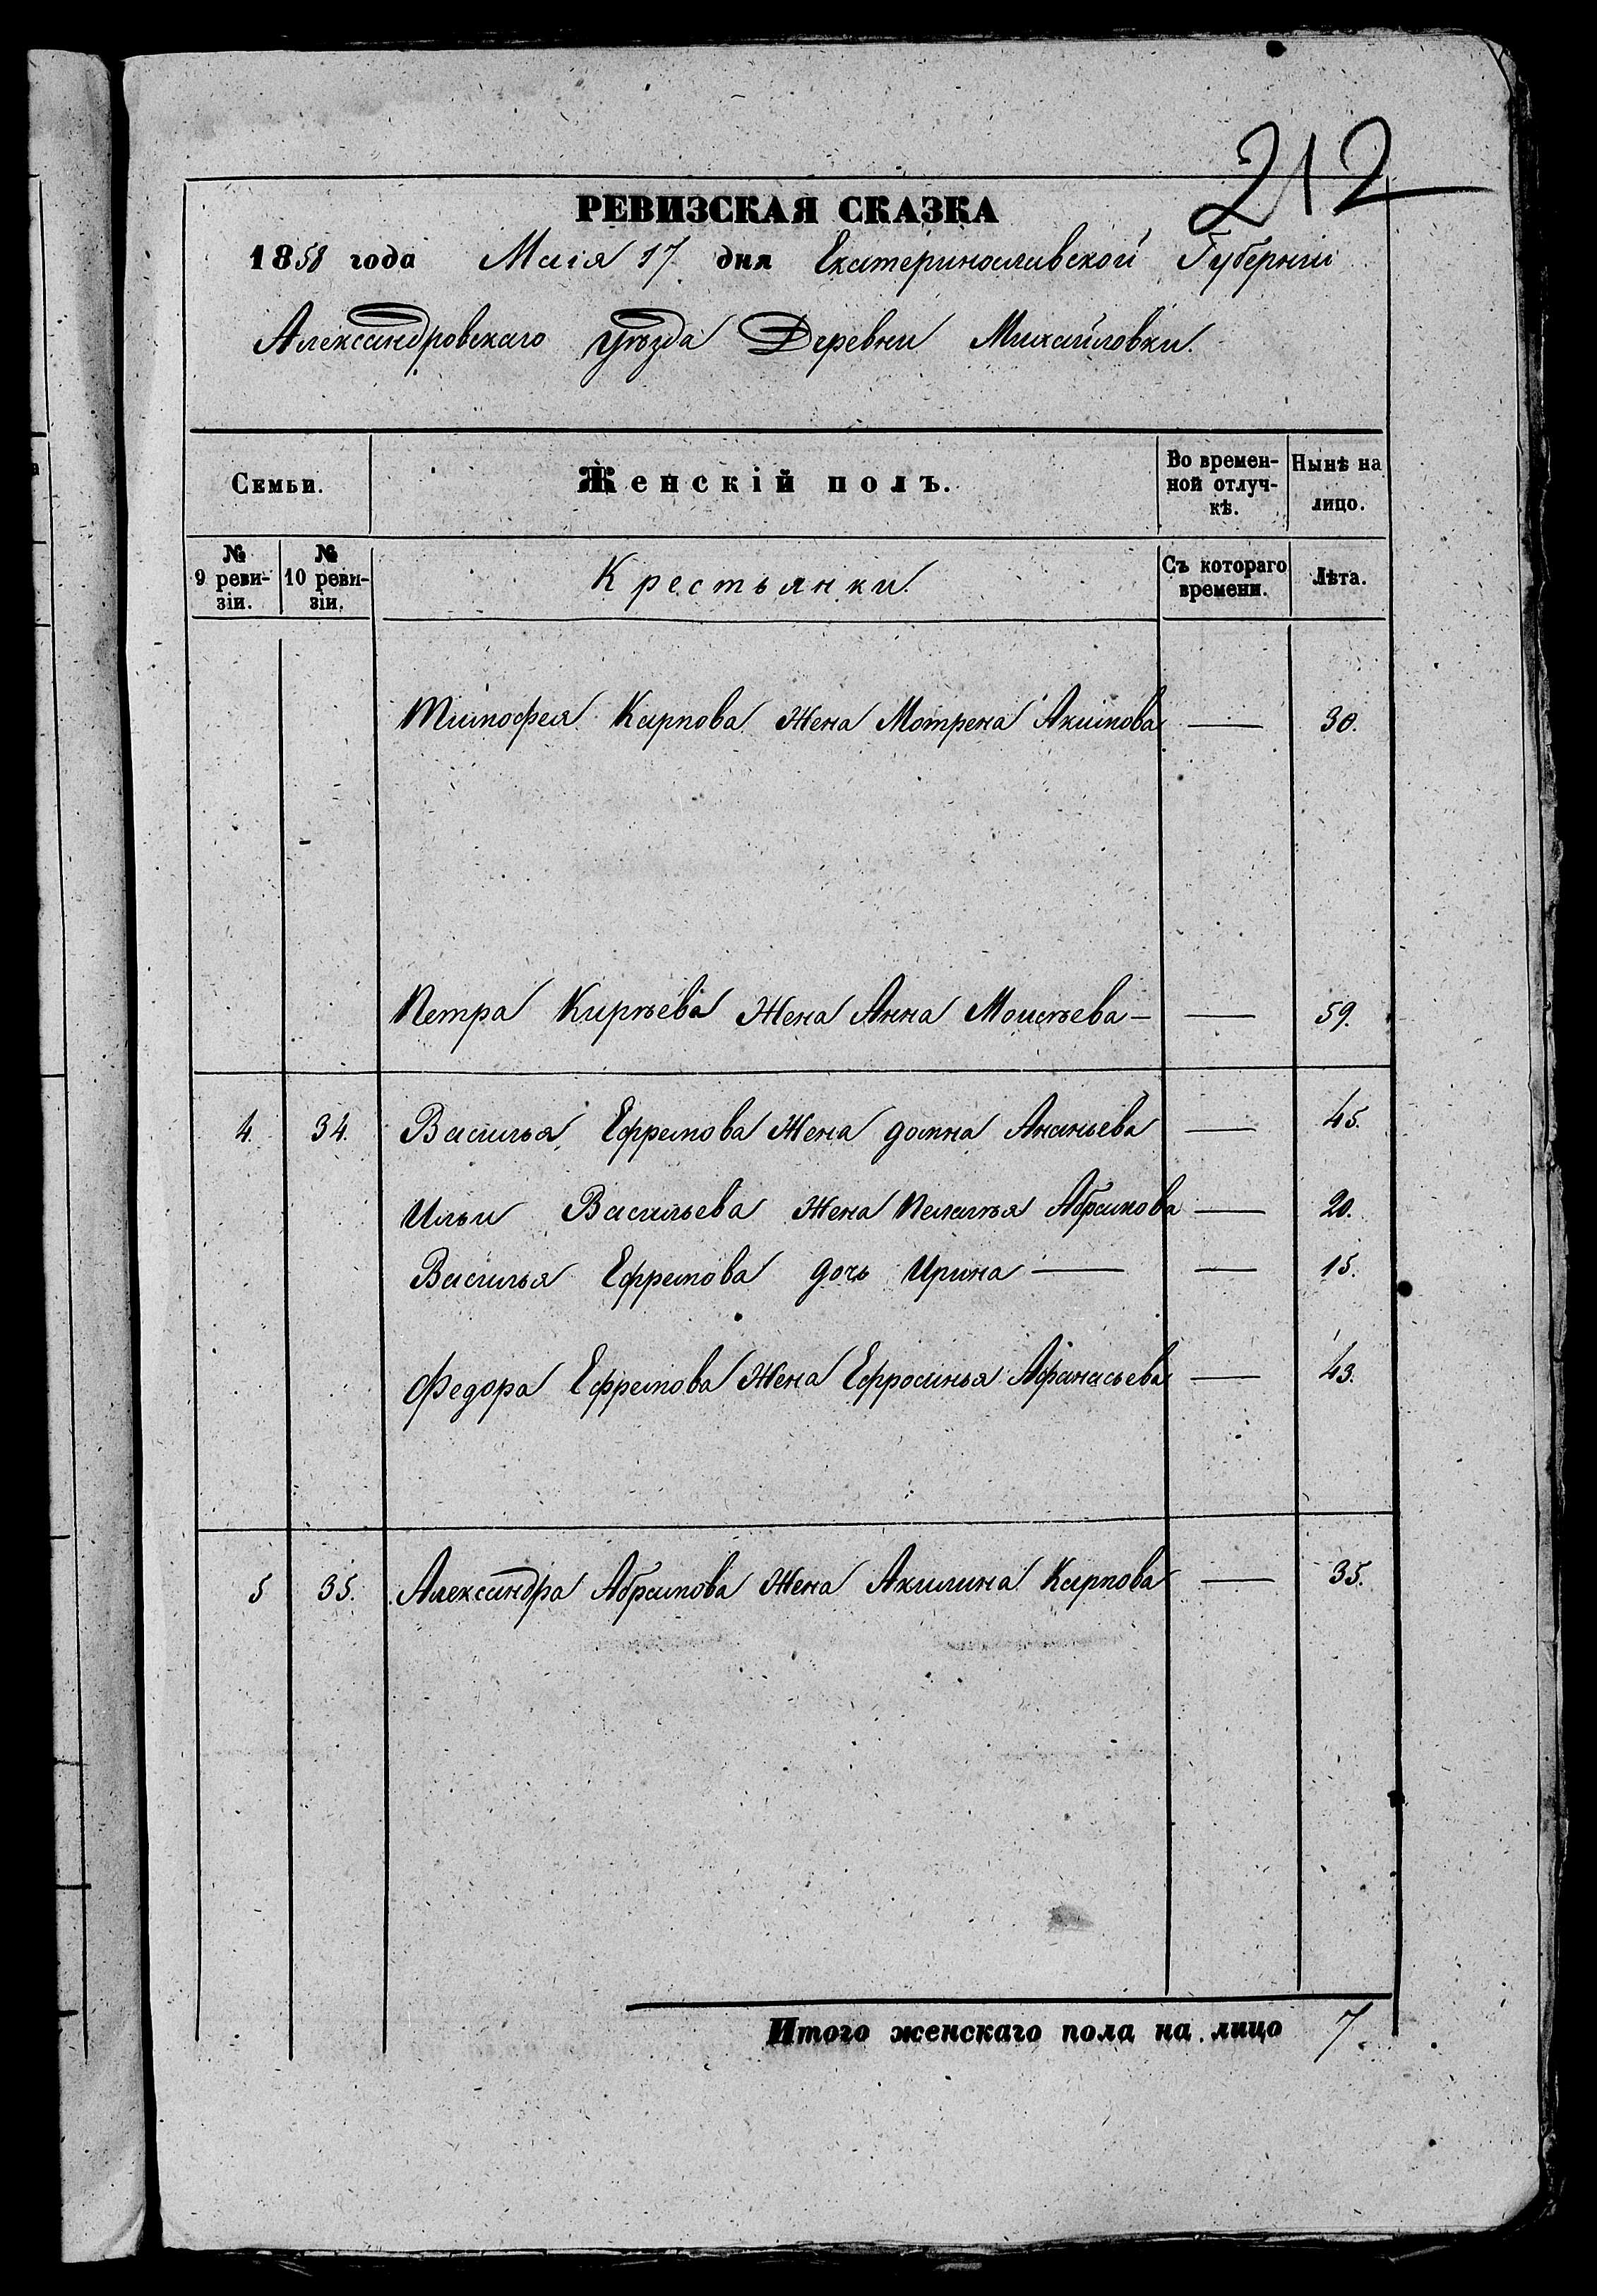 212
РЕВИЗСКАЯ СКАЗКА
1858 года Маія 17 дня Екатеринославской Губерніи
Александровскаго уѣзда Деревни Михайловки.
Семьи. Женскій полъ. Во времен-ной отлуч-кѣ. Нынѣ на лицо.
№ 9 реви-зіи. № 10 реви-зіи. Крестьянки. Съ котораго времени. Лѣта.
Тимофея Карпова Жена Мотрена Акимова — 30.
Петра Кирѣева Жена Анна Моисѣева — — 59.
4. 34. Василья Ефремова Жена домна Ананьева — 45.
Ильи Васильева Жена Пелагѣя Абрамова — 20.
Василья Ефремова дочь Ирина — — 15.
Федора Ефремова Жена Ефросинья Афанасьева — 43.
5 35. Александра Абрамова Жена Акилина Карпова — 35.
Итого женскаго пола на лицо 7.